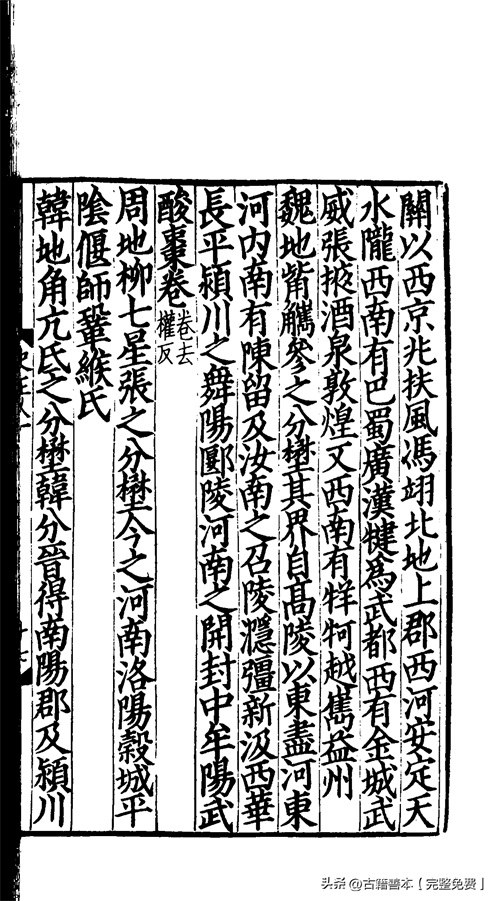 關以西京兆扶風馮翊北地上郡西河安定天
水隴西南有巴蜀廣漢犍爲武都西有金城武
威張掖酒泉敦煌又西南有牂牁越嶲益州
魏地觜觿參之分壄其界自髙陵以東盡河東
河内南有陳留及汝南之召陵㶏彊新汲西華
長平潁川之舞陽郾陵河南之開封中牟陽武
酸棗卷卷去權反
周地柳七星張之分壄今之河南洛陽穀城平
陰偃師鞏緱氏
韓地角亢氐之分壄韓分晉得南陽郡及潁川
头条 @古籍善本【完整免费】